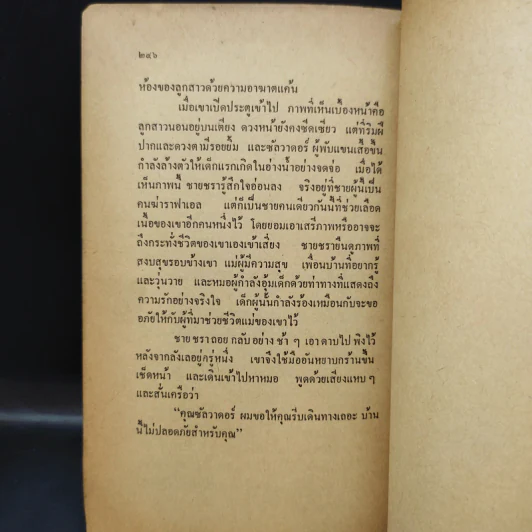 ๒๔๖
ห้องของลูกสาวด้วยความอาฆาตแค้น
เมื่อเขาเปิดประตูเข้าไป ภาพที่เห็นเบื้องหน้าคือ
ลูกสาวนอนอยู่บนเตียง ดวงหน้ายังคงซีดเซียว แต่ที่ริมฝี
ปากและดวงตามีรอยยิ้ม และซัลวาดอร์ ผู้พับแขนเสื้อขึ้น
กำลังล้างตัวให้เด็กแรกเกิดในอ่างน้ำอย่างจดจ่อ เมื่อได้
เห็นภาพนี้ ชายชรารู้สึกใจอ่อนลง จริงอยู่ที่ชายผู้นี้เป็น
คนฆ่าราฟาเอล แต่ก็เป็นชายคนเดียวกันนี้ที่ช่วยเลือด
เนื้อของเขาอีกคนหนึ่งไว้ โดยยอมเอาเสรีภาพหรืออาจจะ
ถึงกระทั่งชีวิตของเขาเองเข้าเสี่ยง ชายชรายืนดูภาพที่
สงบสุขรอบข้างเขา แม่ผู้มีความสุข เพื่อนบ้านที่อยากรู้
และวุ่นวาย และหมอผู้กำลังอุ้มเด็กด้วยท่าทางที่แสดงถึง
ความรักอย่างจริงใจ เด็กผู้นั้นกำลังร้องเหมือนกับจะขอ
อภัยให้กับผู้ที่มาช่วยชีวิตแม่ของเขาไว้
ชายชราถอยกลับอย่างช้า ๆ เอาดาบไปพิงไว้
หลังจากลังเลอยู่ครู่หนึ่ง เขาจึงใช้มืออันหยาบกร้านขึ้น
เช็ดหน้า และเดินเข้าไปหาหมอ พูดด้วยเสียงแหบ ๆ
และสั่นเครือว่า
“คุณซัลวาดอร์ ผมขอให้คุณรีบเดินทางเถอะ บ้าน
นี้ไม่ปลอดภัยสำหรับคุณ”